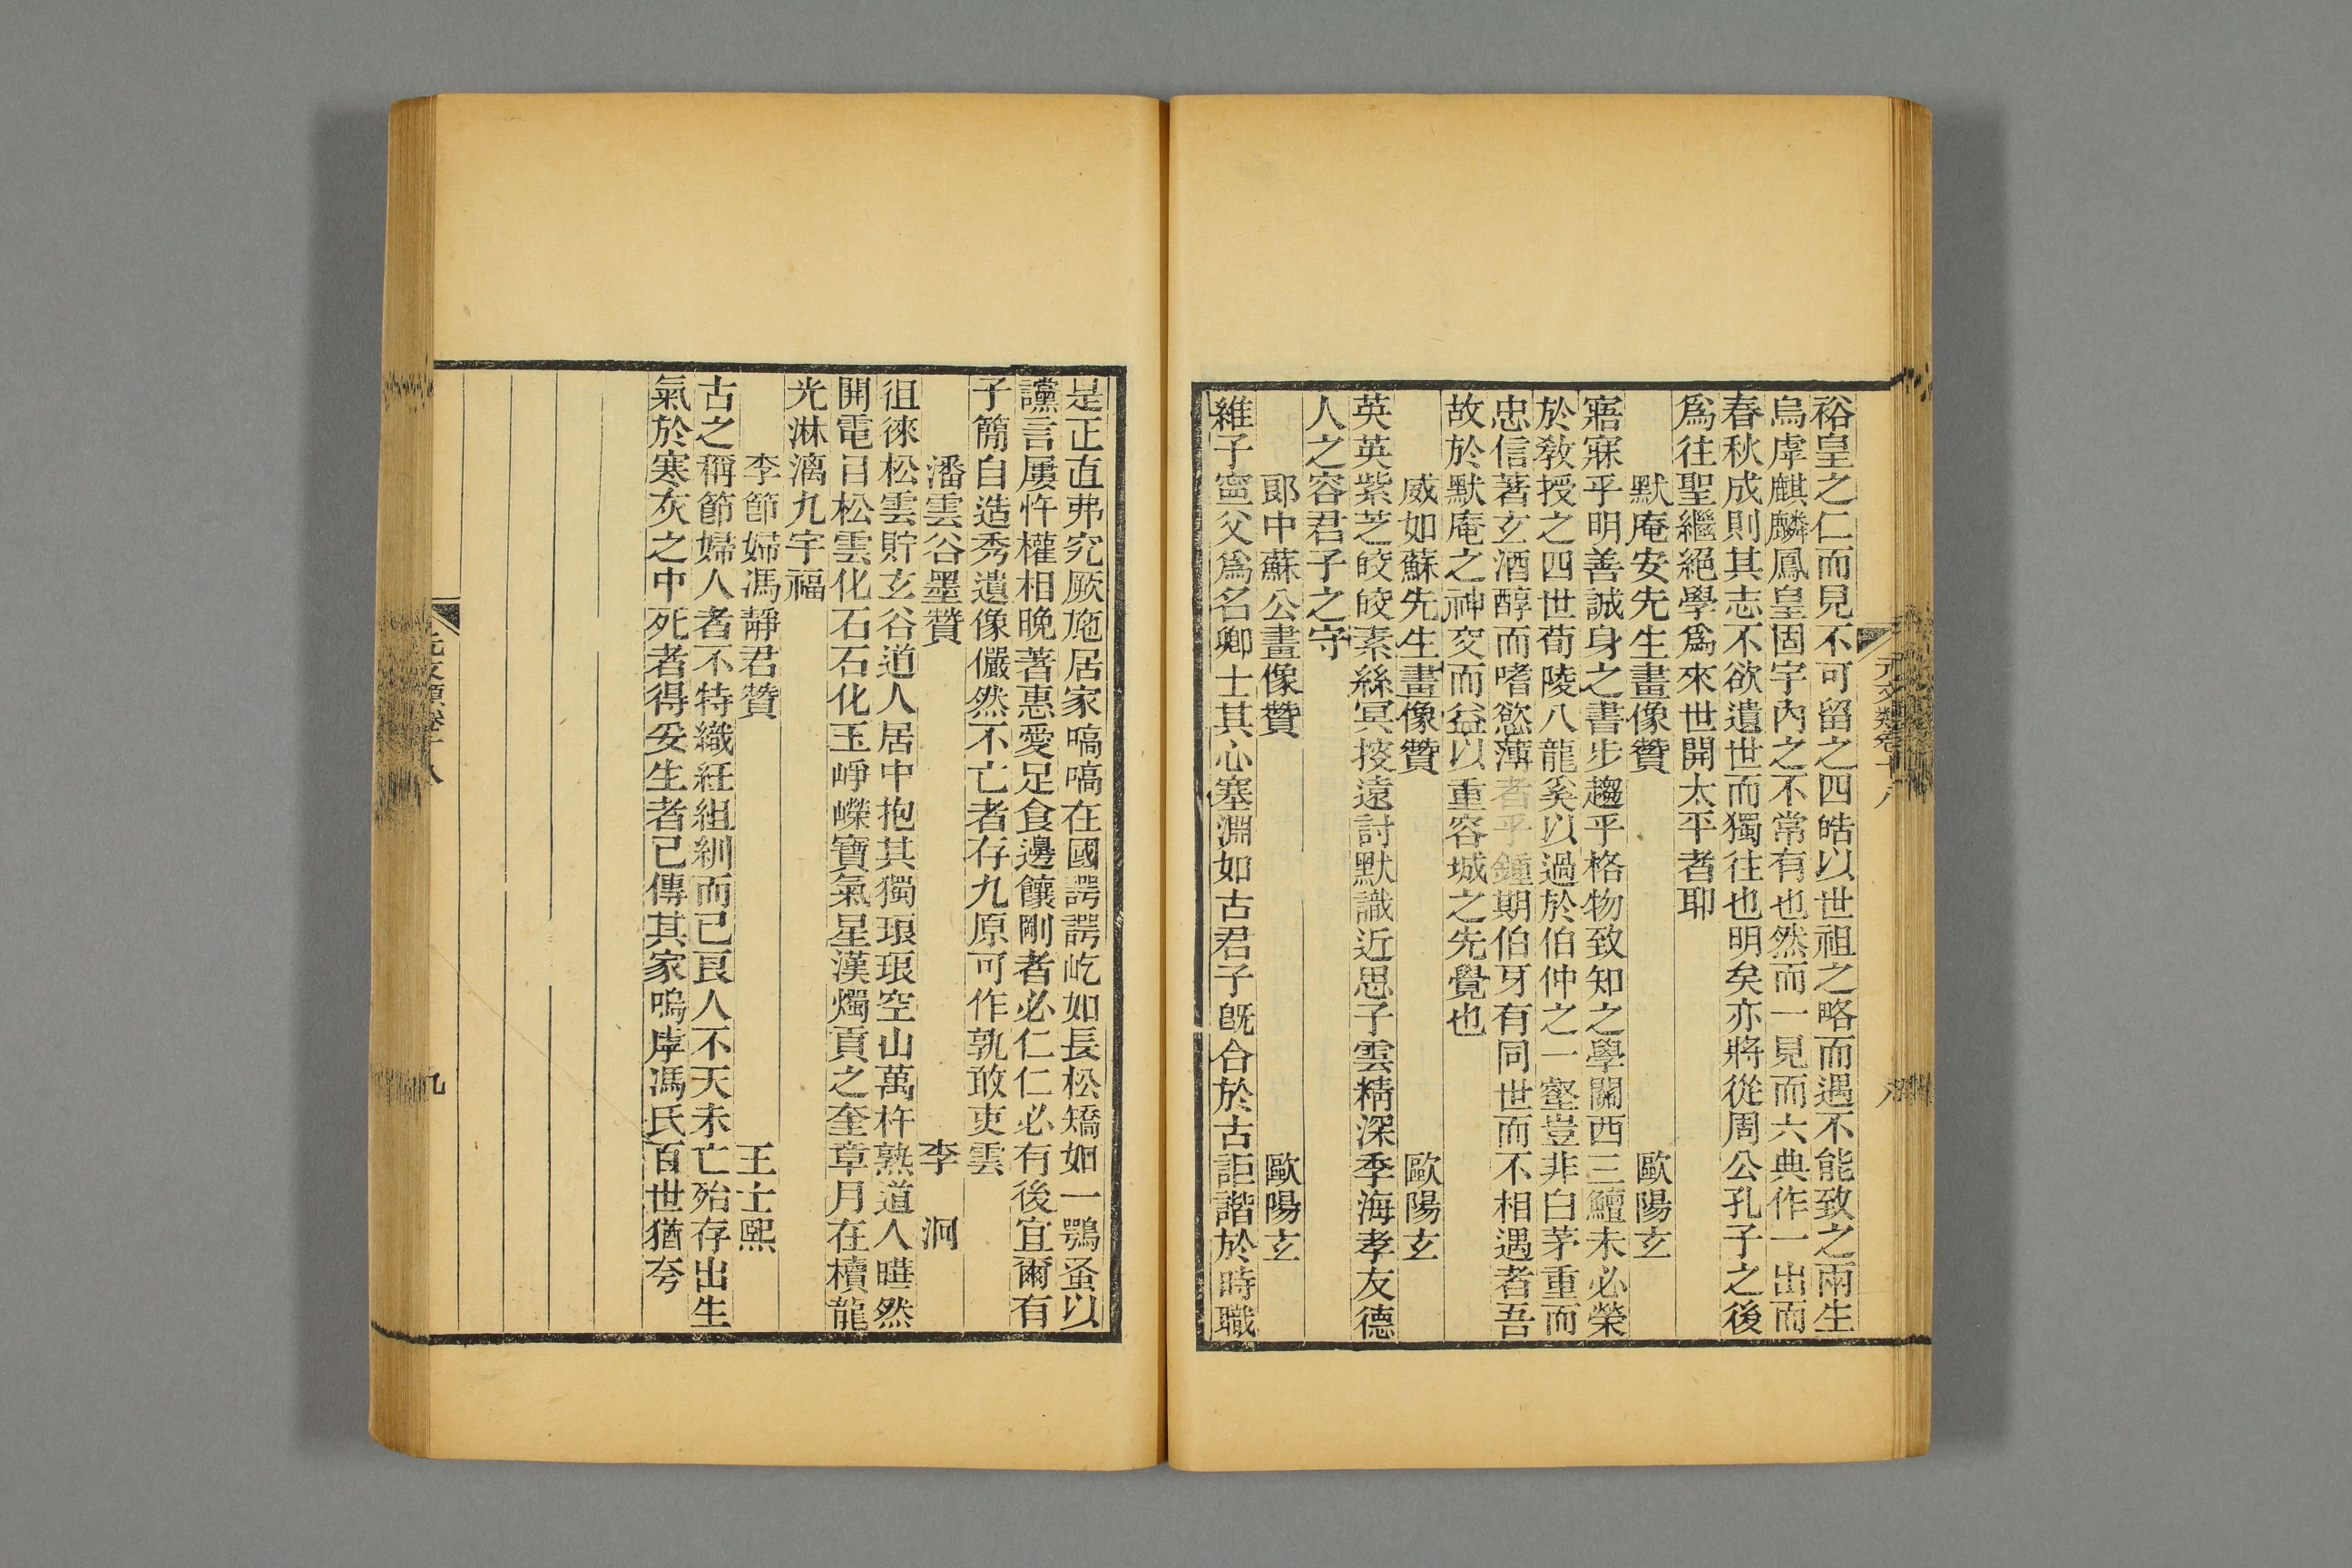 裕皇之仁而見不可留之四皓以世祖之略而遇不能致之兩生
烏虖麒麟鳳皇固宇內之不常有也然而一見而六典作一出而
春秋成則其志不欲遺世而獨往也明矣亦將從周公孔子之後
爲往聖繼絕學爲來世開太平者耶
默庵安先生畫像贊 歐陽玄
寤寐乎明善誠身之書步趨乎格物致知之學關西三鱣未必榮
於敎授之四世荀陵八龍奚以過於伯仲之一壑豈非白茅重而
忠信著玄酒醇而嗜慾薄者乎鍾期伯牙有同世而不相遇者吾
故於默庵之神交而益以重容城之先覺也
威如蘇先生畫像贊 歐陽玄
英英紫芝皎皎素絲冥搜遠討默識近思子雲精深季海孝友德
人之容君子之守
郎中蘇公畫像贊 歐陽玄
維子寍父爲名卿士其心塞淵如古君子旣合於古詎諧於時職
元文類卷十八 八
是正直弗究厥施居家嗃嗃在國諤諤屹如長松矯如一鶚蚤以
讜言屢忤權相晚著惠愛足食邊饟剛者必仁仁必有後宜爾有
子簡自造秀遺像儼然不亡者存九原可作孰敢吏雲
潘雲谷墨贊 李洞
徂徠松雲貯玄谷道人居中抱其獨琅琅空山萬杵熟道人曄然
開電目松雲化石石化玉崢嶸寶氣星漢燭貢之奎章月在櫝龍
光淋漓九宇福
李節婦馮靜君贊 王士熙
古之稱節婦人者不特織紝組紃而已良人不天未亡殆存出生
氣於寒灰之中死者得妥生者已傳其家嗚虖馮氏百世猶夸
元文類卷十八 九